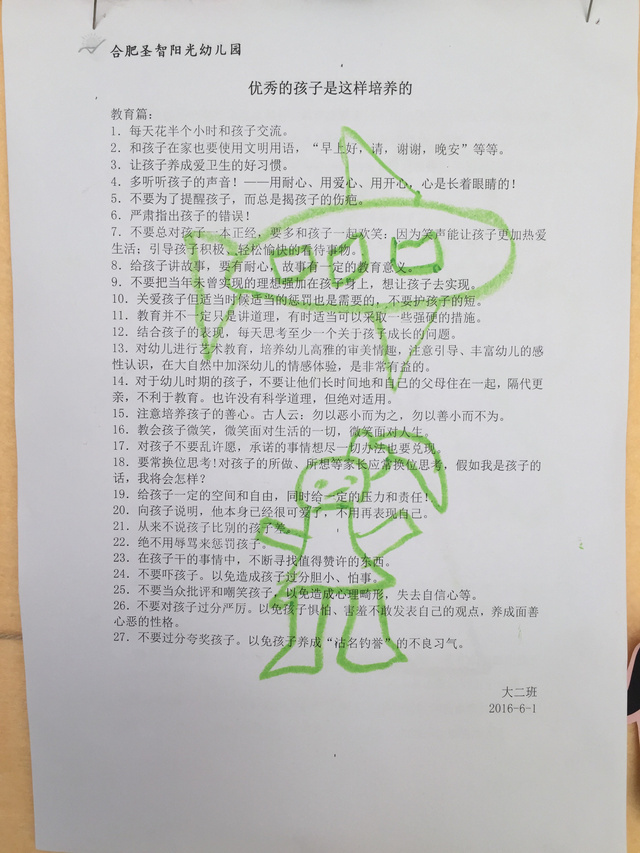 合肥圣智阳光幼儿园
优秀的孩子是这样培养的
教育篇：
1．每天花半个小时和孩子交流。
2．和孩子在家也要使用文明用语，“早上好，请，谢谢，晚安”等等。
3．让孩子养成爱卫生的好习惯。
4．多听听孩子的声音！——用耐心、用爱心、用开心，心是长着眼睛的！
5．不要为了提醒孩子，而总是揭孩子的伤疤。
6．严肃指出孩子的错误！
7．不要总对孩子一本正经，要多和孩子一起欢笑：因为笑声能让孩子更加热爱
生活；引导孩子积极、轻松愉快的看待事物。
8．给孩子讲故事，要有耐心，故事有一定的教育意义。
9．不要把当年未曾实现的理想强加在孩子身上，想让孩子去实现。
10．关爱孩子但适当时候适当的惩罚也是需要的，不要护孩子的短。
11．教育并不一定只是讲道理，有时适当可以采取一些强硬的措施。
12．结合孩子的表现，每天思考至少一个关于孩子成长的问题。
13．对幼儿进行艺术教育，培养幼儿高雅的审美情趣，注意引导、丰富幼儿的感
性认识，在大自然中加深幼儿的情感体验，是非常有益的。
14．对于幼儿时期的孩子，不要让他们长时间地和自己的父母住在一起，隔代更
亲，不利于教育。也许没有科学道理，但绝对适用。
15．注意培养孩子的善心。古人云：勿以恶小而为之，勿以善小而不为。
16．教会孩子微笑，微笑面对生活的一切，微笑面对人生。
17．对孩子不要乱许愿，承诺的事情想尽一切办法也要兑现。
18．要常换位思考！对孩子的所做、所想等家长应常换位思考，假如我是孩子的
话，我将会怎样？
19．给孩子一定的空间和自由，同时给一定的压力和责任！
20．向孩子说明，他本身已经很可爱了，不用再表现自己。
21．从来不说孩子比别的孩子差。
22．绝不用辱骂来惩罚孩子。
23．在孩子干的事情中，不断寻找值得赞许的东西。
24．不要吓孩子。以免造成孩子过分胆小、怕事。
25．不要当众批评和嘲笑孩子，以免造成心理畸形，失去自信心等。
26．不要对孩子过分严厉。以免孩子惧怕、害羞不敢发表自己的观点，养成面善
心恶的性格。
27．不要过分夸奖孩子。以免孩子养成“沽名钓誉”的不良习气。
大二班
2016-6-1